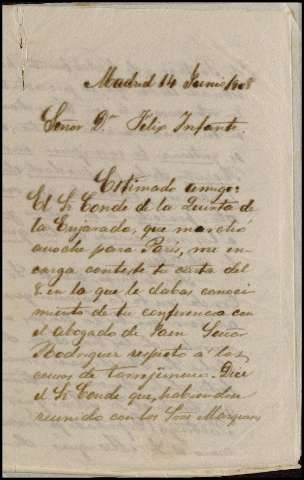 Madrid 14 Junio/908
Señor Dn Felix Infante.
Estimado amigo:
El Sr Conde de la Quinta de
la Enjarada, que marchó
anoche para París, me en-
carga conteste tu carta del
8. en la que le dabas conoci-
miento de tu conferencia con
el abogado de Jaen Señor
Rodriguez respecto á los
de Torrequ
el Sr Conde que, habiendose
reunido con los Sres Marques